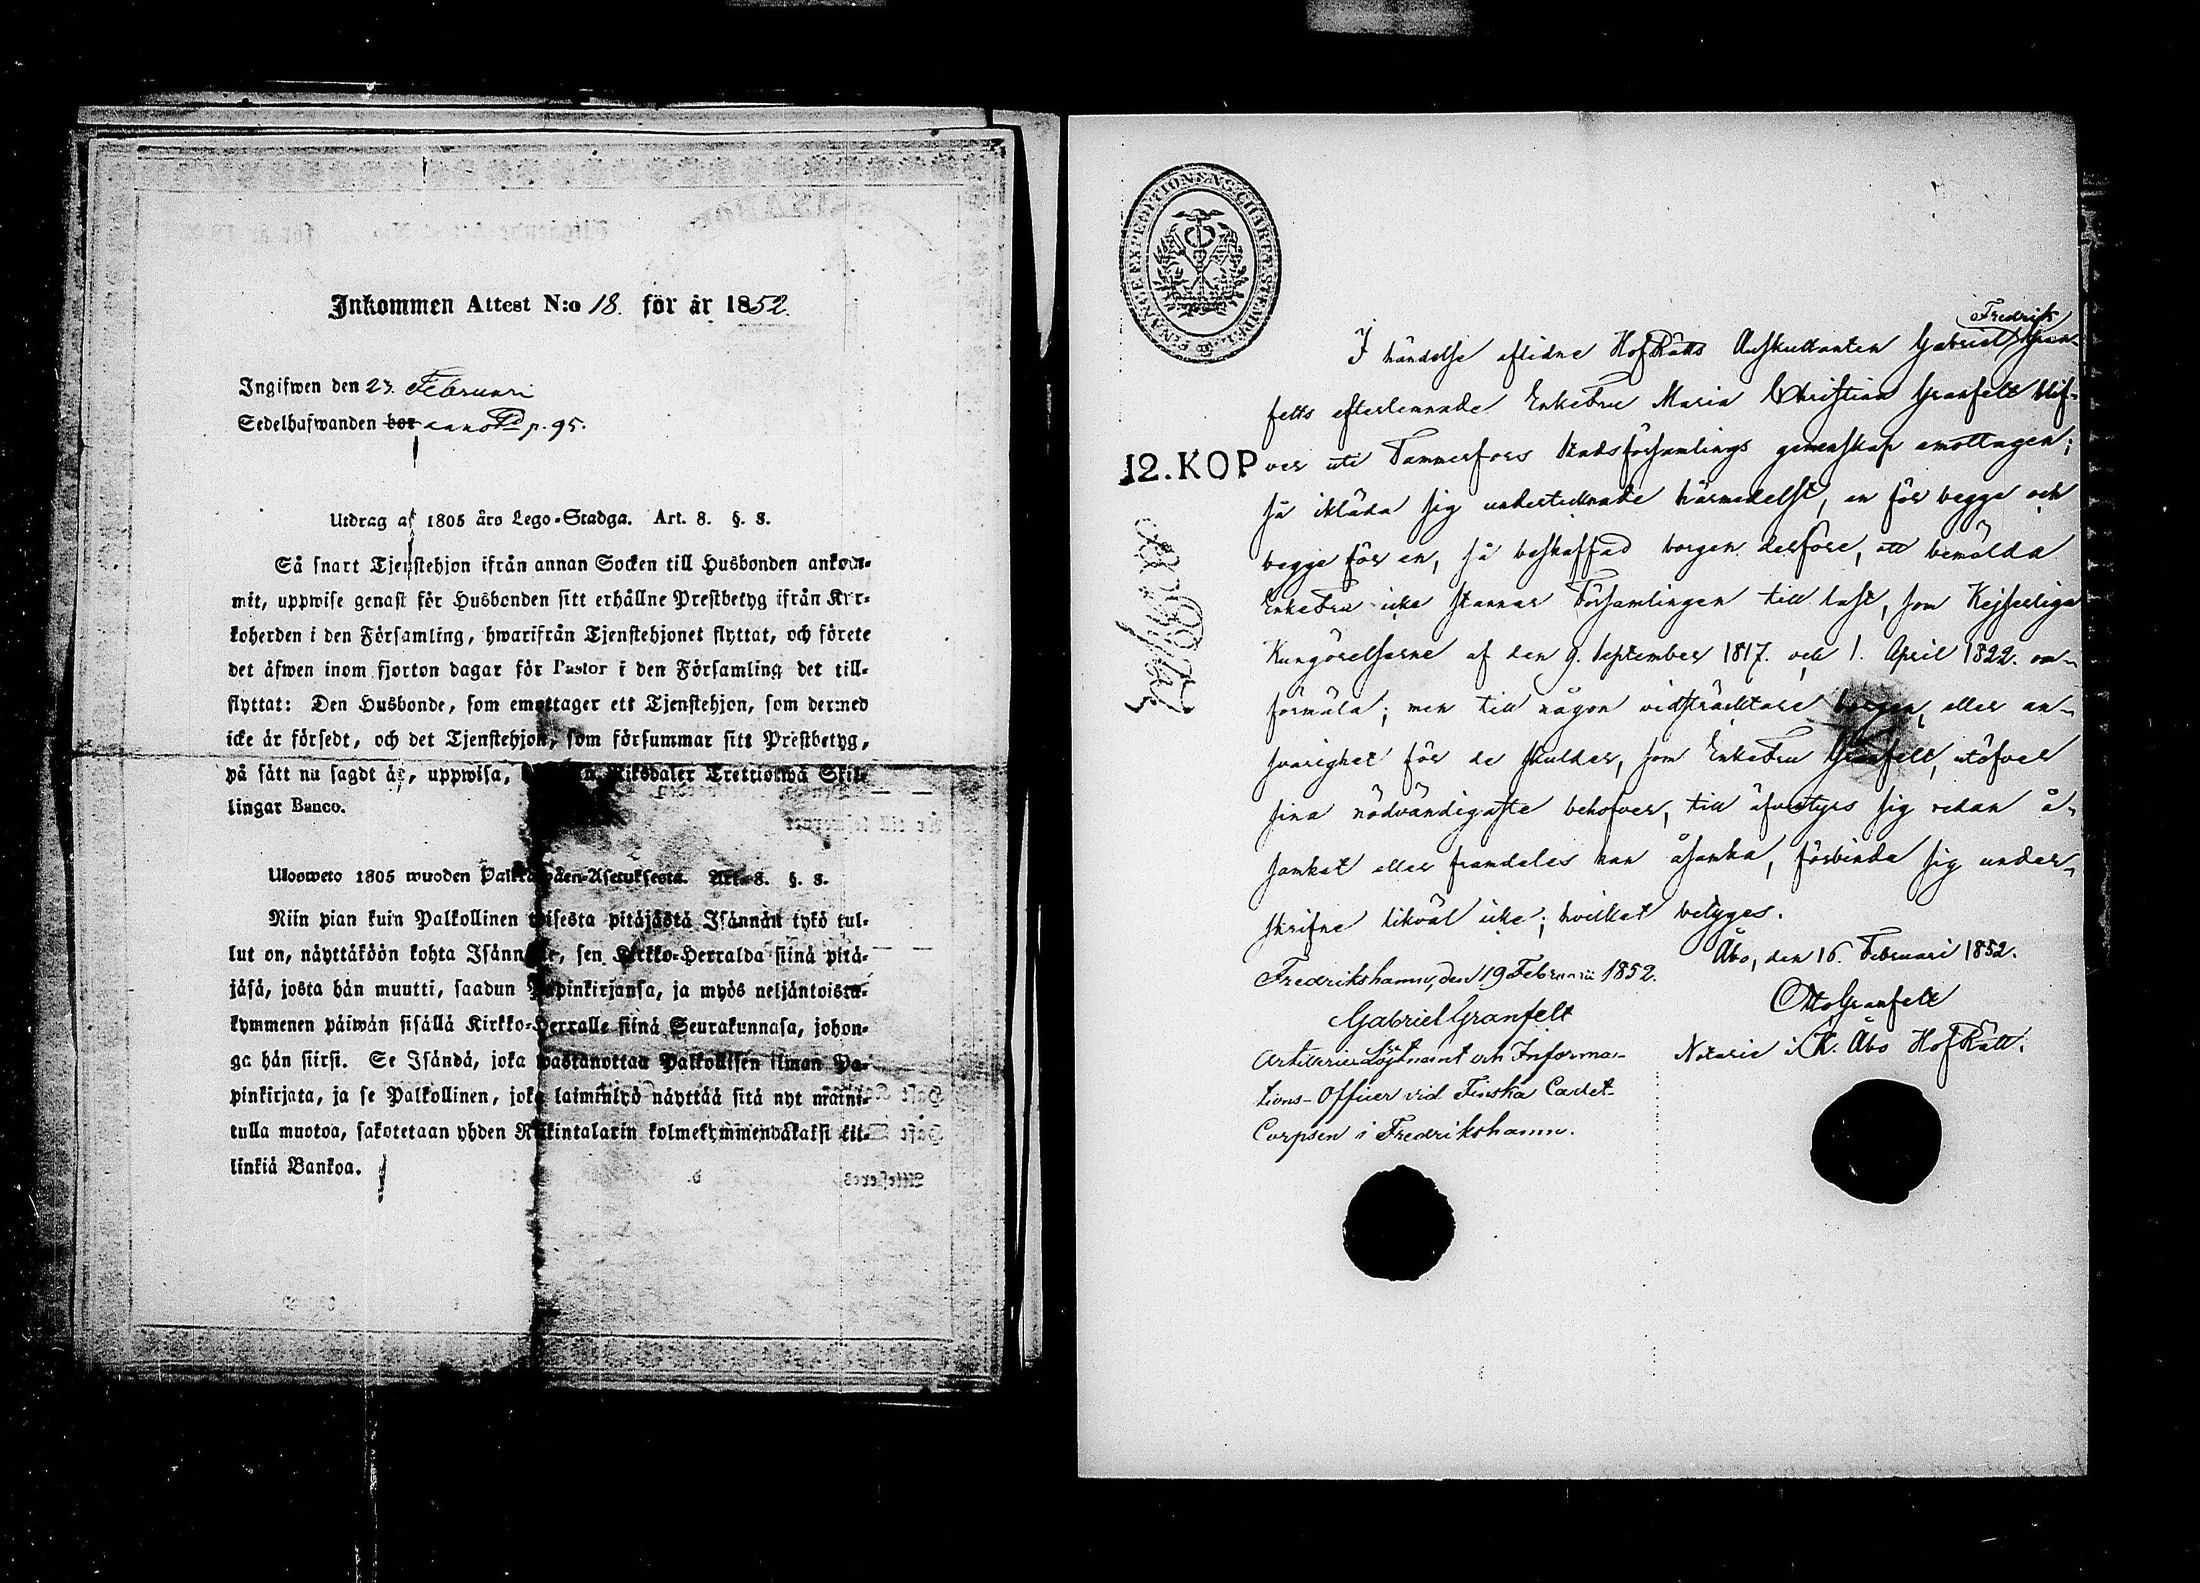 Inkommen Attest N:o 18. för år 1852.
Ingifwen den 23. Februari
Sedelhafwanden bor annot p. 95.
Utdrag af 1805 års Lego-Stadga. Art. 8. §. 8.
Så snart Tjenstehjon ifrån annan Socken till Husbonden ankom-
mit, uppwise genast för Husbonden sitt erhållne Prestbetyg ifrån Kyr-
koherden i den Församling, hwarifrån Tjenstehjonet flyttat, och förete
det äfwen inom fjorton dagar för Pastor i den Församling det till-
flyttat: Den Husbonde, som emottager ett Tjenstehjon, som dermed
icke är försedt, och det Tjenstehjon, som försummar sitt Prestbetyg,
på sätt nu sagdt är, uppwisa, Riksdaler Trettiotwå Skil-
lingar Banco.
Ulosweto 1805 wuoden Palkollisten-Asetuksesta. Art. 8. §. 8.
Niin pian kuin Palkollinen toisesta pitäjästä Isännän tykö tul-
lut on, näyttäköön kohta Isännälle, sen Kirkko-Herralda siinä pitä-
jäsä, josta hän muutti, saadun Papinkirjansa, ja myös neljäntoista-
kymmenen päiwän sisällä Kirkko-Herralle siinä Seurakunnasa, johon-
ga hän siirsi. Se Isändä, joka wastanottaa Palkollisen ilman Pa-
pinkirjata, ja se Palkollinen, joka laiminlyö näyttää sitä nyt maini-
tulla muotoa, sakotetaan yhden Riikintalarin kolmekymmendäkaksi kil-
linkiä Bankoa.
FINANCE EXPEDITIONENS CHARTÆ STEMPEL
12.KOP
Fredrik
I händelse aflidne HofRätts Auskultanten Gabriel Gran-
felts efterlemnade EnkeFru Maria Christina Granfelt blif-
ver uti Tammerfors Stadsförsamlings gemenskap emottagen;
så ikläda sig undertecknade härmedelst, en för begge och
begge för en, så beskaffad borgen derföre, att bemälda
EnkeFru icke stannar Församlingen till last, som Kejserliga
Kungörelserne af den 9. September 1817. och 1. April 1822. om-
förmäla; men till någon vidsträcktare borgen, eller an-
svarighet för de skulder, som EnkeFru Granfelt, utöfver
sina nödvändigaste behofver, till äfventyrs sig redan å-
samkat eller framdeles kan åsamka, förbinda sig under-
skrifne likväl icke; hvilket betyges.
Åbo, den 16. Februari 1852.
Otto Granfelt
Notarie i K. Åbo HofRätt.
Fredrikshamn, den 19 Februarii 1852.
Gabriel Granfelt
Artilleri Löjtnant och Informa-
tions-Officer vid Finska Cadet-
Corpsen i Fredrikshamn.